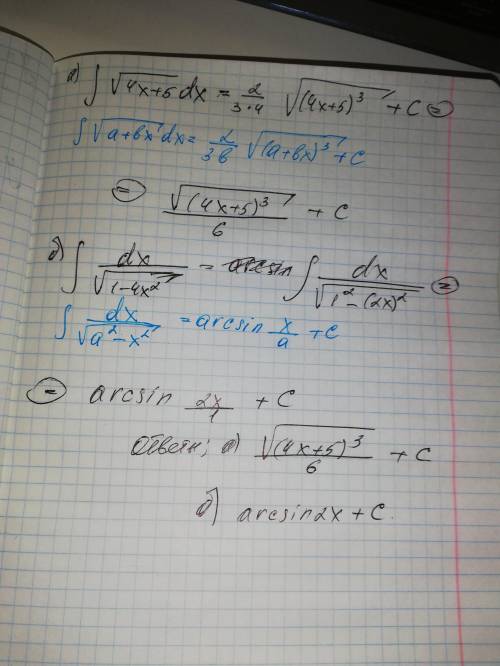 а) ∫ √(4x+5) dx = 2/(3·4) √((4x+5)³) + C =
∫ √(a+bx) dx = 2/(3b) √((a+bx)³) + C
= √((4x+5)³)/6 + C
б) ∫ dx/√(1-4x²) = ∫ dx/√(1²-(2x)²) =
∫ dx/√(a²-x²) = arcsin x/a + C
= arcsin 2x/1 + C
Ответ: а) √((4x+5)³)/6 + C
б) arcsin2x + C.